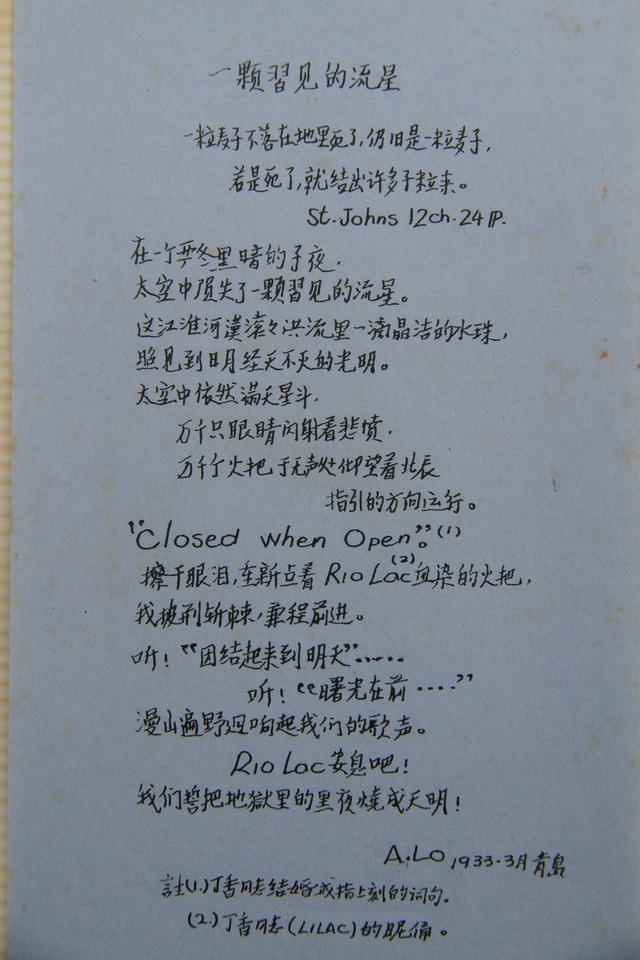 一颗習见的流星
一粒麦子不落在地里死了,仍旧是一粒麦子,
若是死了,就结出许多子粒来。
St. Johns 12ch. 24 P.
在一个严冬黑暗的子夜,
太空中陨失了一颗習见的流星。
这江淮河漢滚々洪流里一滴晶洁的水珠,
照见到日月经天不灭的光明。
太空中依然满天星斗,
万千只眼睛闪射着悲愤,
万千个火把于无声处仰望着北辰
指引的方向运行。
"Closed when Open"。(1)
擦干眼泪,重新点着 Rio Lac(2)血染的火把,
我披荆斩棘,兼程前进。
听!"团结起来到明天"……
听!"曙光在前……"
漫山遍野迴响起我们的歌声。
Rio Lac安息吧!
我们誓把地獄里的黑夜燒成天明!
A. Lo 1933.3月青島
註(1.)丁香同志结婚戒指上刻的词句.
(2.)丁香同志(LILAC)的昵偁。